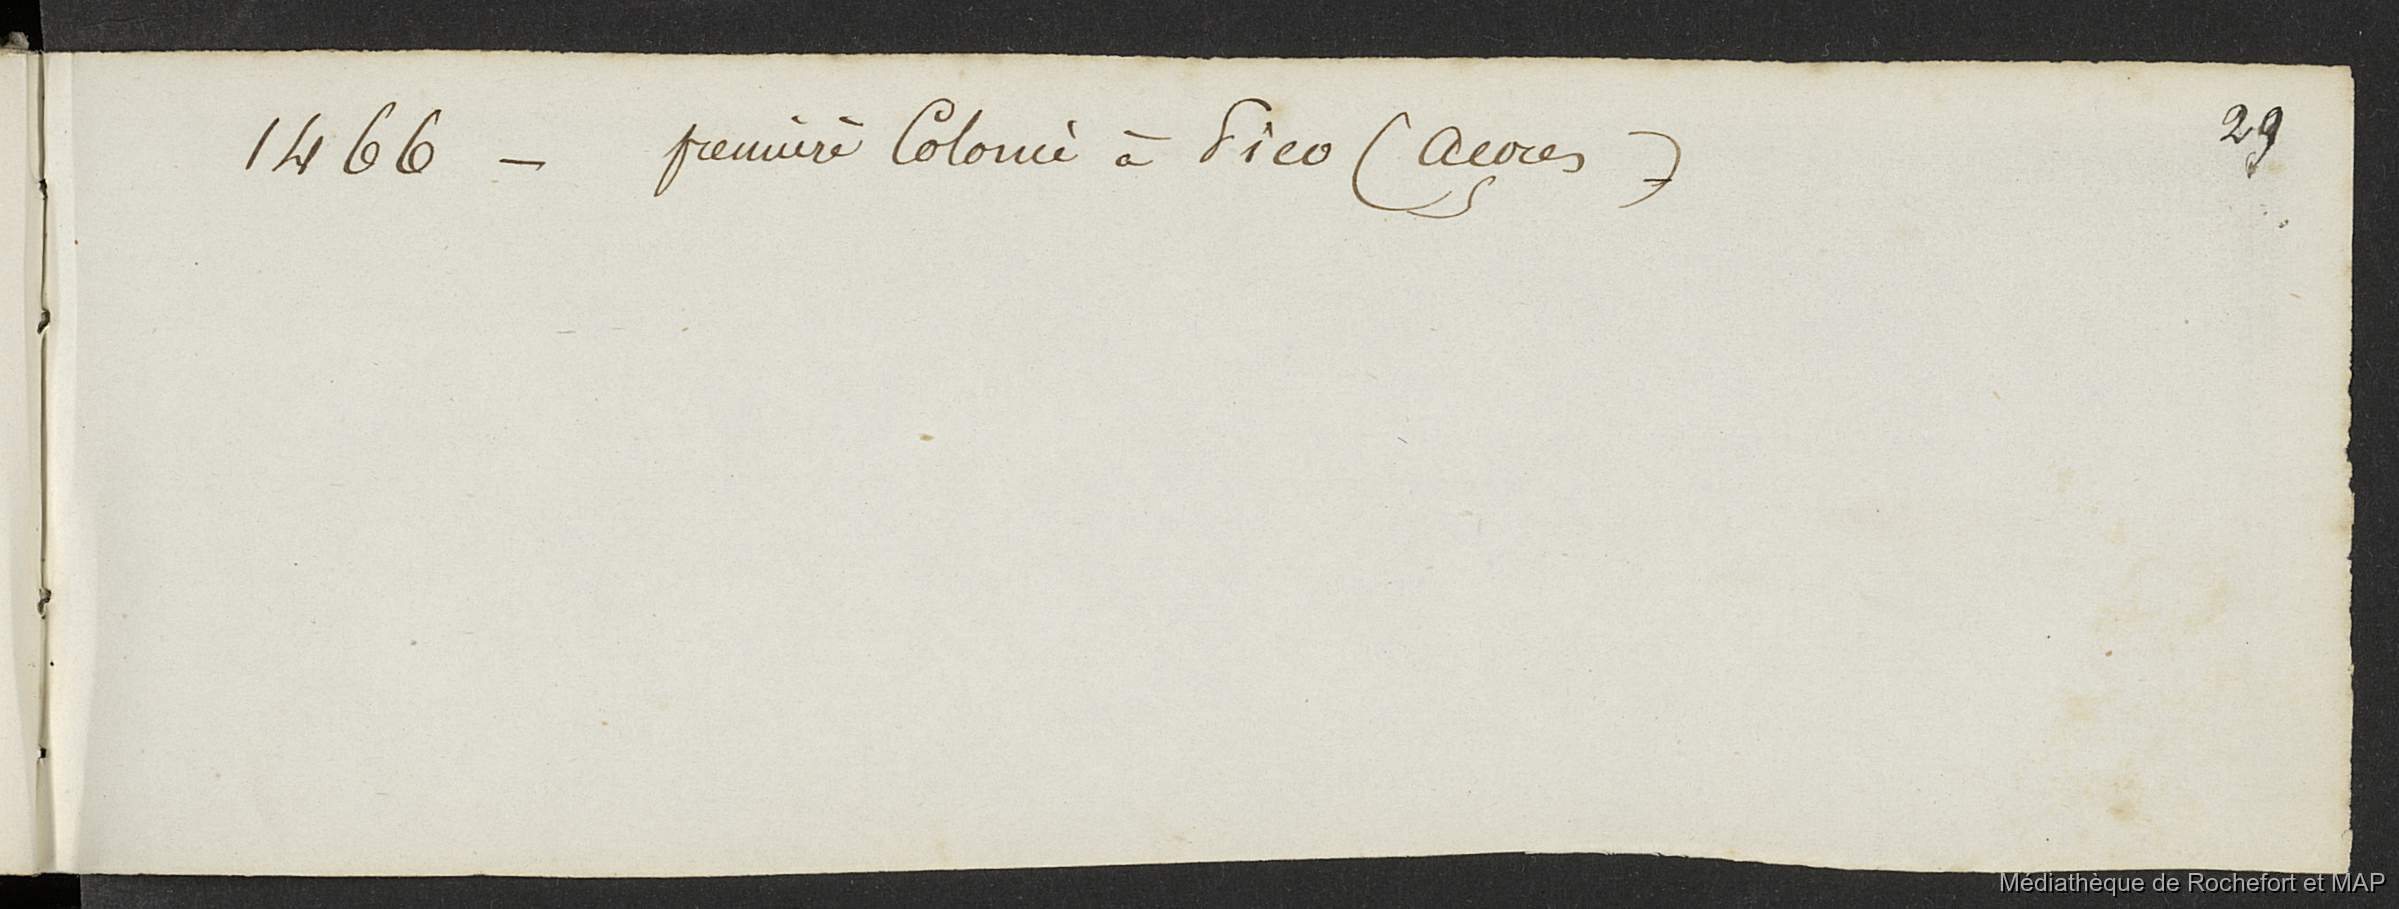 29
1466 - première Colonie à Pico (Açores)
Médiathèque de Rochefort et MAP